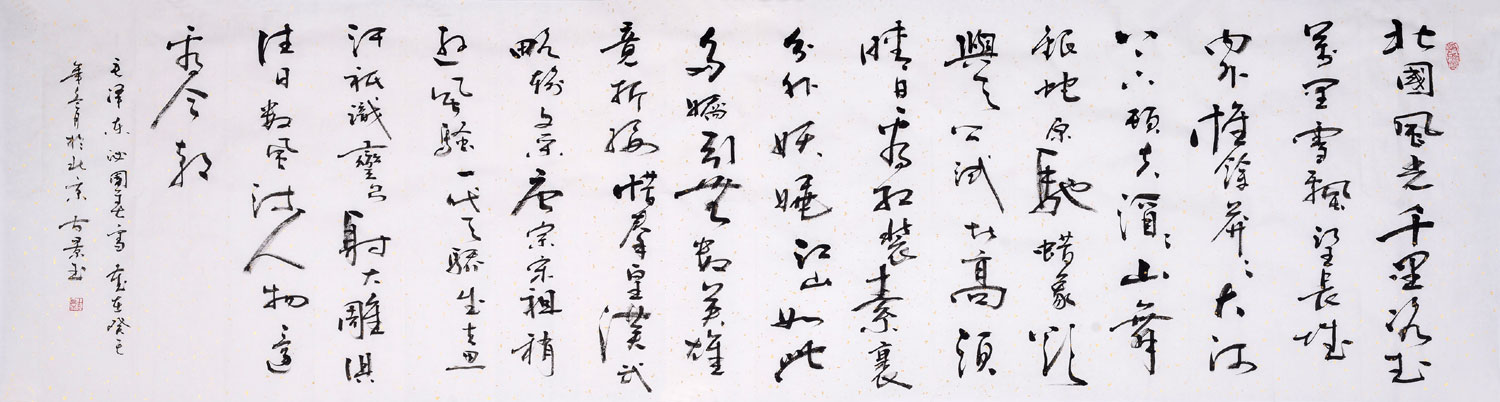 北國風光千里冰封
萬里雪飄望長城
內外惟餘莽々大河
上下頓失滔々山舞
銀蛇原馳蜡象欲
與天公試比高須
晴日看紅裝素裹
分外妖嬈江山如此
多嬌引無數英雄
竟折腰惜秦皇漢武
略輸文采唐宗宋祖稍
遜風騷一代天驕成吉思
汗祇識彎弓射大雕俱
往矣數風流人物還
看今朝
毛澤東沁園春雪 歲在癸巳
年冬月於北京 古景書